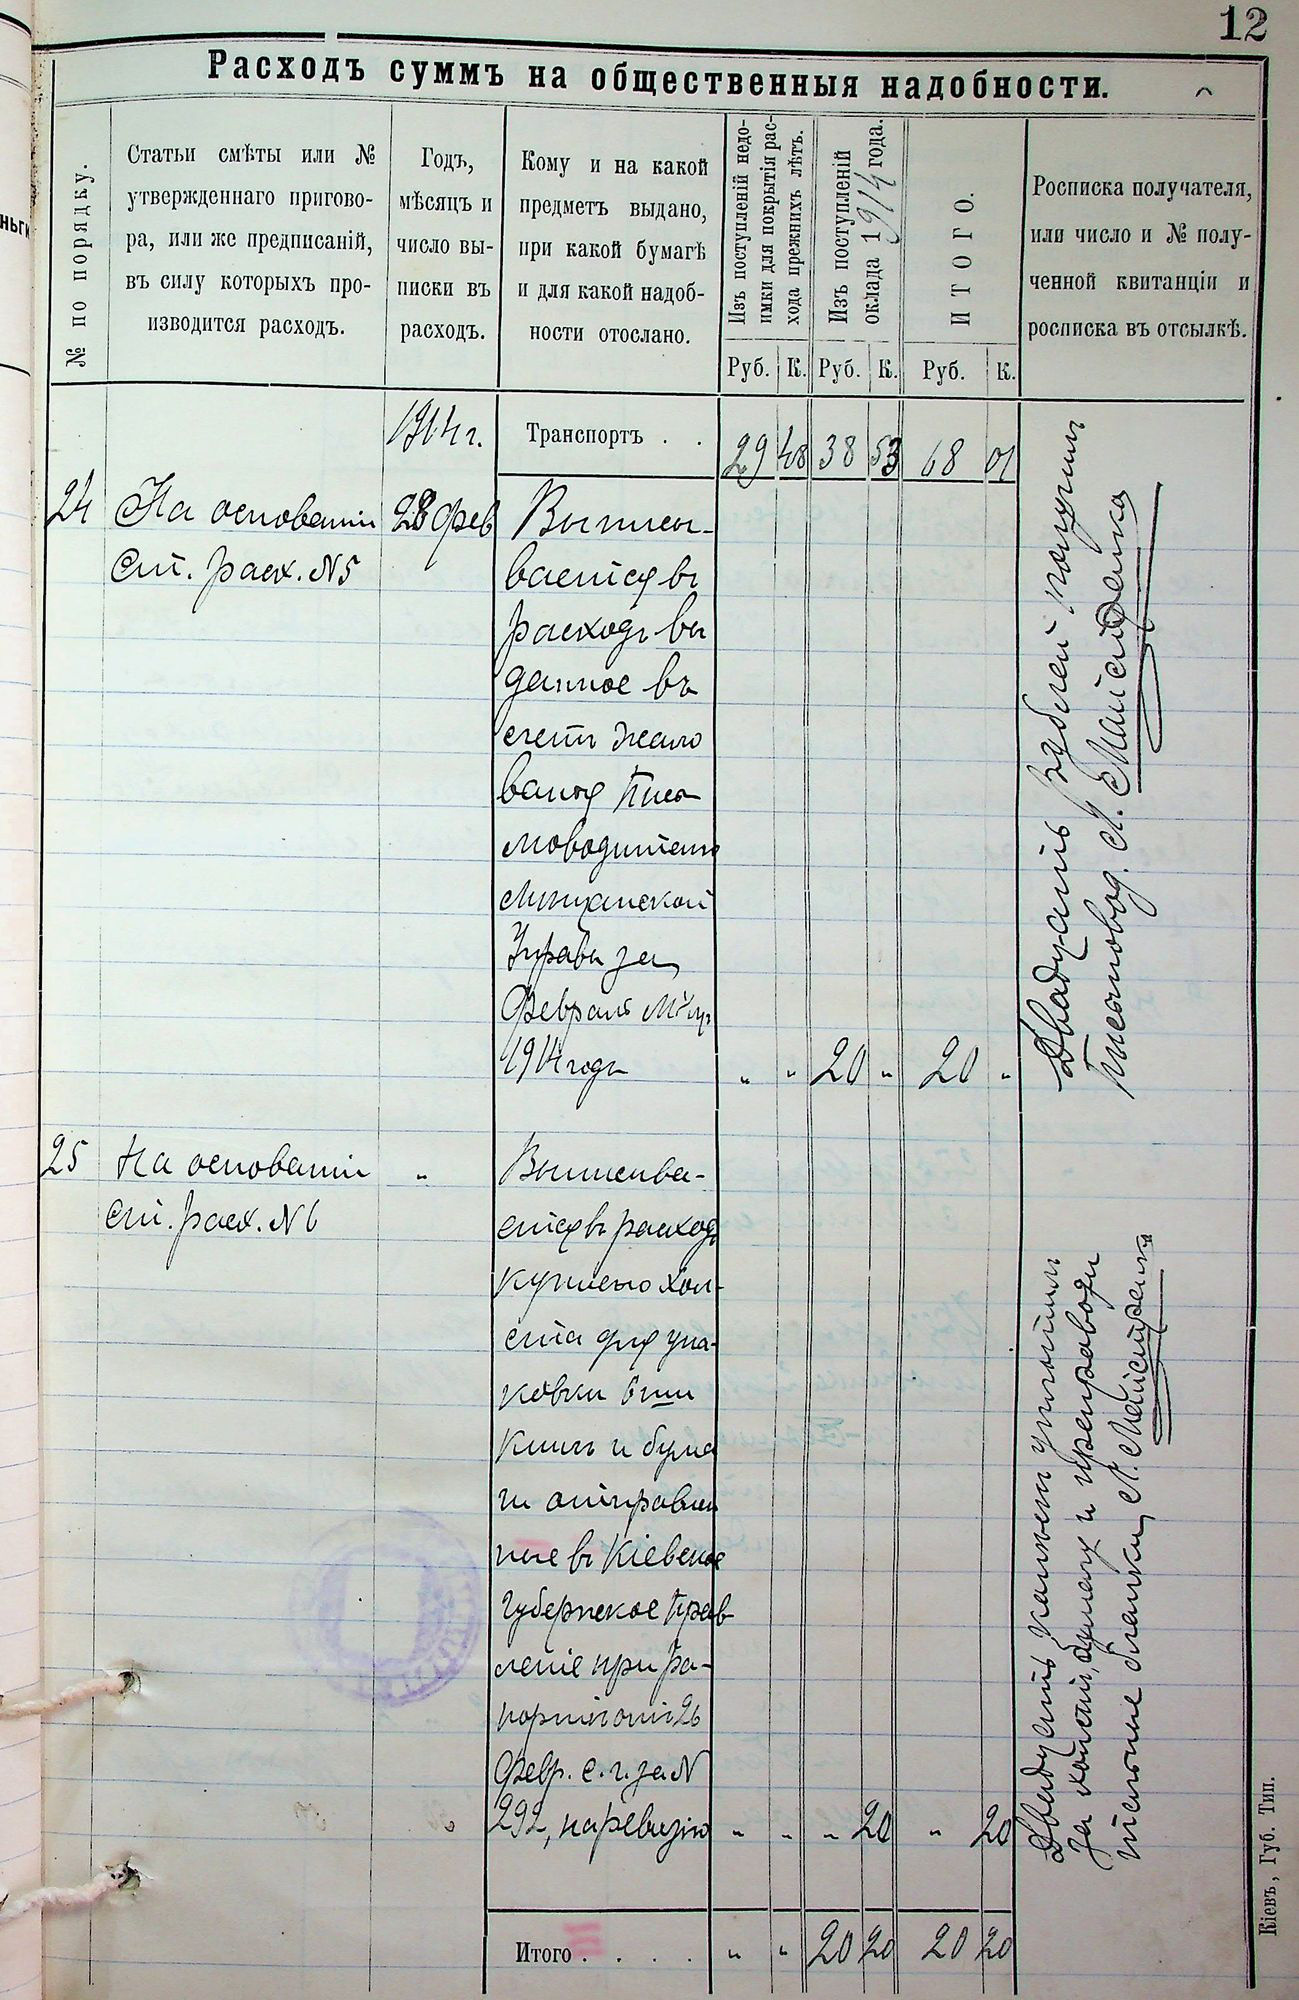 12
Расходъ суммъ на общественныя надобности.
№ по порядку.
Статьи смѣты или №
утвержденнаго пригово-
ра, или же предписаній,
въ силу которыхъ про-
изводится расходъ.
Годъ,
мѣсяцъ и
число вы-
писки въ
расходъ.
Кому и на какой
предметъ выдано,
при какой бумагѣ
и для какой надоб-
ности отослано.
Изъ поступленій недо-
имки для покрытія рас-
хода прежнихъ лѣтъ.
Изъ поступленій
оклада 1914 года.
ИТОГО.
Росписка получателя,
или число и № полу-
ченной квитанціи и
росписка въ отсылкѣ.
Руб. К. Руб. К. Руб. К.
1914 г. Транспортъ . . 29 48 38 53 68 01
24 На основаніи 28 фев Выписы-
Ст. расх. N5 вается въ
расходъ вы
данное въ
счетъ жало
ванья Пись
моводителю
Мѣщанской
Управы за
Февраль М-ць
1914 годъ " " 20 " 20 "
Двадцать рублей получилъ
Письмовод. Л. Майстренко
25 На основаніи " Выписыва-
ст. расх. N6 ется въ расходъ
куплено хол-
ста для упа-
ковки 6 ти
книгъ и бума
ги отправлен
ные въ Кіевское
Губернское Прав
леніе при ра-
портѣ отъ 26
Февр. с. г. за N
292, на ревизію " " " 20 " 20
Двадцать копѣекъ уплотилъ
за холстъ, бумагу и препроводи
тельные бланки, Л. Майстренко
Итого . . . . " " 20 20 20 20
Кіевъ, Губ. Тип.
ньги